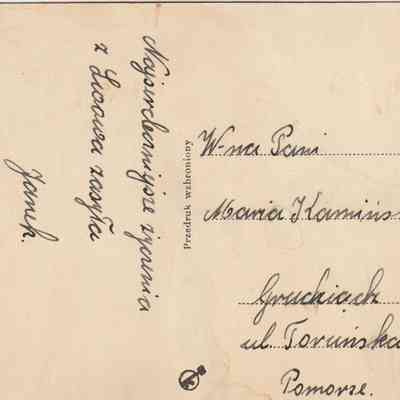 Najserdeczniejsze życzenia
z Lwowa zasyła
Janek.
Przedruk wzbroniony
W-na Pani
Maria Kamińs
Grudziądz
ul. Toruńska
Pomorze.